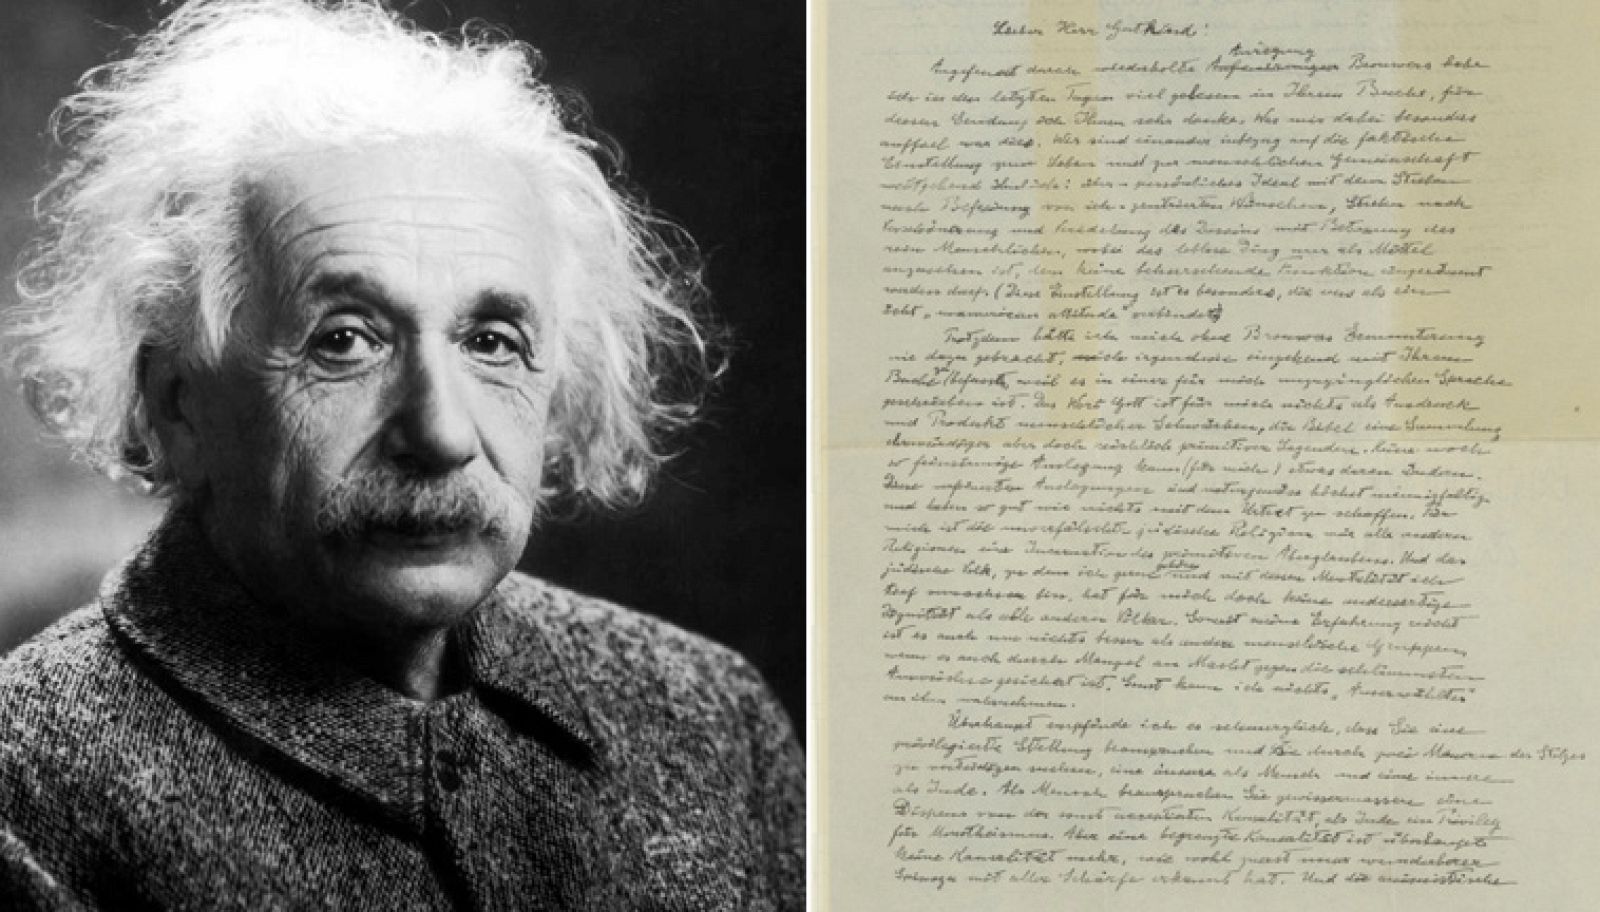 Lieber Herr Gutkind!
Anregung
Angefeuert durch wiederholte Brouwers habe
ich in den letzten Tagen viel gelesen in Ihrem Buche, für
dessen Sendung ich Ihnen sehr danke. Was mir dabei besonders
auffiel war dies. Wir sind einander inbezug auf die faktische
Einstellung zum Leben und zur menschlichen Gemeinschaft
weitgehend ähnlich: persönliches Ideal mit dem Streben
nach Befreiung von ich-zentrierten Wünschen, Streben nach
Verschönerung und Veredelung des Daseins mit Betonung des
rein Menschlichen, wobei das leblose Ding nur als Mittel
anzusehen ist, dem keine beherrschende Funktion eingeräumt
werden darf. (Diese Einstellung ist es besonders, die uns als ein
echt „unamerican attitude" verbindet)
Trotzdem hätte ich mich ohne Brouwers Ermunterung
nie dazu gebracht, mich irgendwie eingehend mit Ihrem
Buche zu befassen, weil es in einer für mich unzugänglichen Sprache
geschrieben ist. Das Wort Gott ist für mich nichts als Ausdruck
und Produkt menschlicher Schwächen, die Bibel eine Sammlung
ehrwürdiger aber doch reichlich primitiver Legenden. Keine noch
so feinsinnige Auslegung kann (für mich) etwas daran ändern.
Diese verfeinerten Auslegungen sind naturgemäss höchst mannigfaltig
und haben so gut wie nichts mit dem Urtext zu schaffen. Für
mich ist die unverfälschte jüdische Religion wie alle anderen
Religionen eine Incarnation des primitiven Aberglaubens. Und das
jüdische Volk, zu dem ich gern gehöre und mit dessen Mentalität ich
tief verwachsen bin, hat für mich doch keine andersartige
Dignität als alle anderen Völker. Soweit meine Erfahrung reicht
ist es auch um nichts besser als andere menschliche Gruppen
wenn es auch durch Mangel an Macht gegen die schlimmsten
Auswüchse gesichert ist. Sonst kann ich nichts „Auserwähltes"
an ihm wahrnehmen.
Überhaupt empfinde ich es schmerzlich, dass Sie eine
privilegierte Stellung beanspruchen und sie durch zwei Mauern des Stolzes
zu verteidigen suchen, eine äussere als Mensch und eine innere
als Jude. Als Mensch beanspruchen Sie gewissermassen einen
Dispens von der sonst acceptierten Kausalität, als Jude ein Privileg
für Monotheismus. Aber eine begrenzte Kausalität ist überhaupt
keine Kausalität mehr, wie wohl zuerst unser wunderbarer
Spinoza mit aller Schärfe erkannt hat. Und die animistische